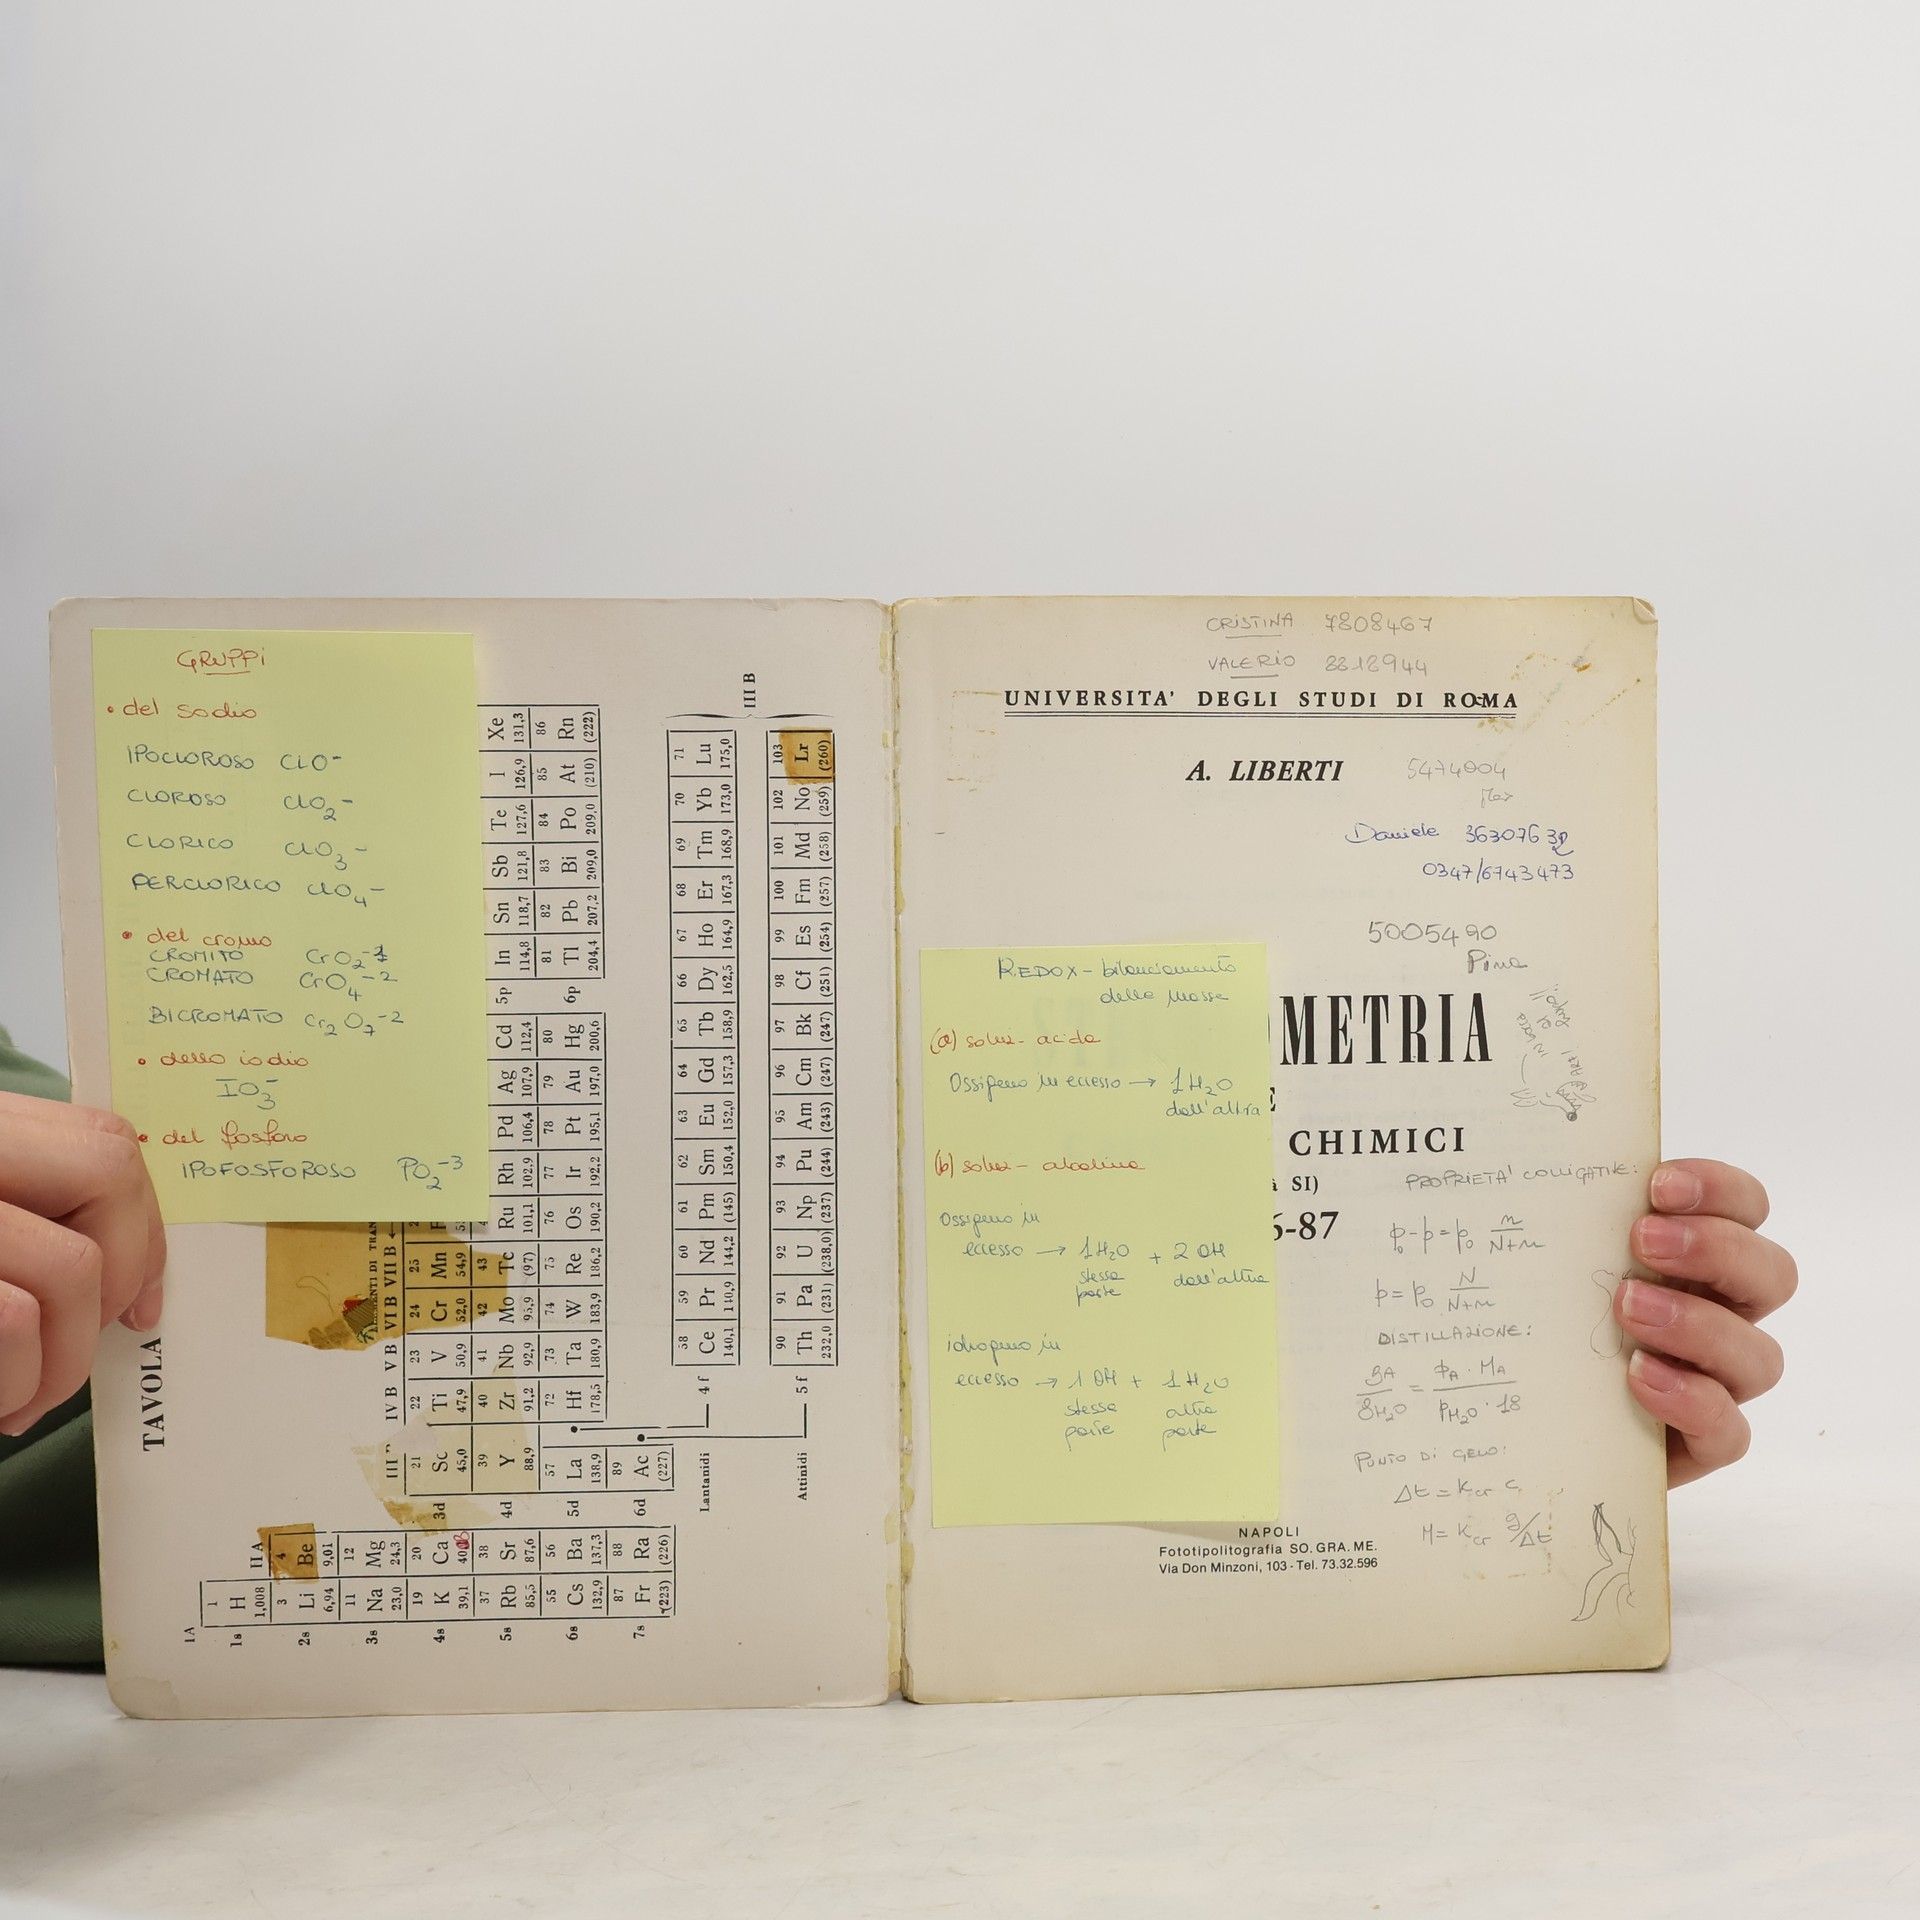 GRUPPI
• del sodio
IPOCLOROSO ClO-
CLOROSO ClO2-
CLORICO ClO3-
PERCLORICO ClO4-
• del cromo
CROMITO CrO2-1
CROMATO CrO4-2
BICROMATO Cr2O7-2
• dello iodio
IO3-
• del fosforo
IPOFOSFOROSO PO2-3
TAVOLA
IA
II A
IV B V B VI B VII B
III B
1s 1 H 1,008
2s 3 Li 6,94 4 Be 9,01
3s 11 Na 23,0 12 Mg 24,3
4s 19 K 39,1 20 Ca 3d 21 Sc 45,0 22 Ti 47,9 23 V 50,9 24 Cr 52,0 25 Mn 54,9
5s 37 Rb 85,5 38 Sr 87,6 4d 39 Y 88,9 40 Zr 91,2 41 Nb 92,9 42 Mo 95,9 43 Tc (97) Ru 101,1 Rh 102,9 Pd 106,4 Ag 107,9 Cd 112,4 5p In 114,8 Sn 118,7 Sb 121,8 Te 127,6 I 126,9 Xe 131,3
6s 55 Cs 132,9 56 Ba 137,3 5d 57 La 138,9 72 Hf 178,5 73 Ta 180,9 74 W 183,9 75 Re 186,2 76 Os 190,2 77 Ir 192,2 78 Pt 195,1 79 Au 197,0 80 Hg 200,6 6p 81 Tl 204,4 82 Pb 207,2 83 Bi 209,0 84 Po 209,0 85 At (210) 86 Rn (222)
7s 87 Fr (223) 88 Ra (226) 6d 89 Ac (227)
Lantanidi 4f 58 Ce 140,1 59 Pr 140,9 60 Nd 144,2 61 Pm (145) 62 Sm 150,4 63 Eu 152,0 64 Gd 157,3 65 Tb 158,9 66 Dy 162,5 67 Ho 164,9 68 Er 167,3 69 Tm 168,9 70 Yb 173,0 71 Lu 175,0
Attinidi 5f 90 Th 232,0 91 Pa (231) 92 U (238,0) 93 Np (237) 94 Pu (244) 95 Am (243) 96 Cm (247) 97 Bk (247) 98 Cf (251) 99 Es (254) 100 Fm (257) 101 Md (258) 102 No (259) 103 Lr (260)
CRISTINA 7808467
VALERIO 8818944
UNIVERSITA' DEGLI STUDI DI ROMA
A. LIBERTI 5474004
Daniele
0347/6743473
5005490
Pina
OMETRIA
CHIMICI
SI)
6-87
REDOX - bilanciamento
delle masse
(a) soluz. acida
Ossigeno in eccesso → 1H2O
dall'altra
(b) soluz. alcalina
Ossigeno in
eccesso → 1H2O + 2OH
stessa dall'altra
parte
idrogeno in
eccesso → 1 OH + 1H2O
stessa altra
parte parte
PROPRIETA' COLLIGATIVE:
p0-p=p0 n/N+n
p=p0 N/N+n
DISTILLAZIONE:
gA/gH2O = pA·MA/pH2O·18
PUNTO DI GELO:
Δt = Kcr C
M = Kcr g/Δt
NAPOLI
Fototipolitografia SO. GRA. ME.
Via Don Minzoni, 103 - Tel. 73.32.596